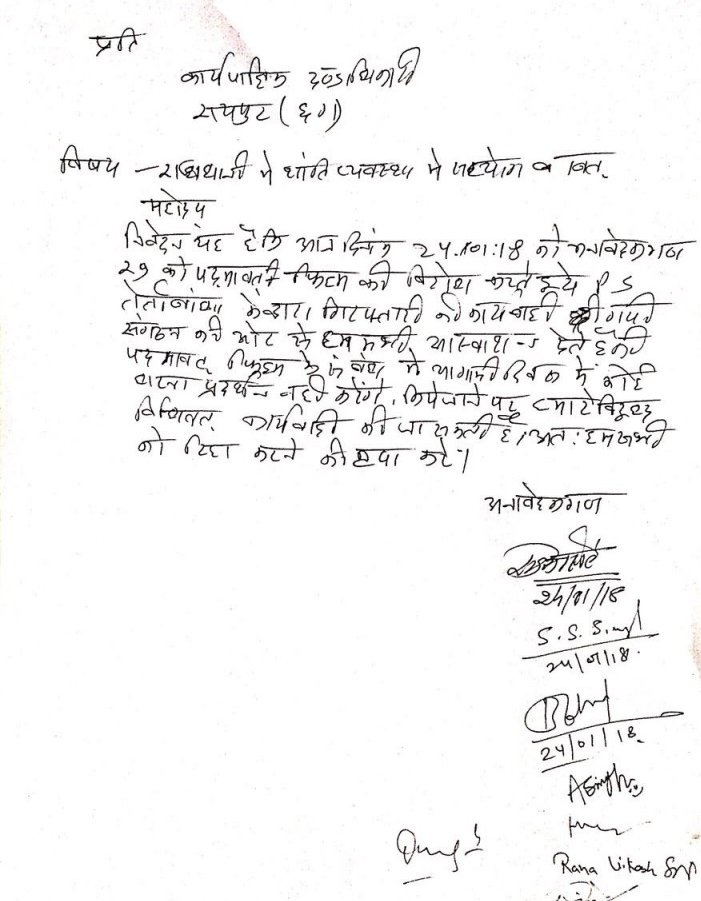 प्रति
कार्यपालिक दण्डाधिकारी
रायपुर (छग)
विषय - राजधानी मे शांति व्यवस्था मे सहयोग बावत.
महोदय
निवेदन यह है कि आज दिनांक 24.01.18 को आवेदकगण
को पदमावती फिल्म की विरोध करते हुये P S
के द्वारा गिरफ्तारी की कायवाही की गयी
संगठन की ओर से हम सभी आस्वाशन देते है की
पदमावत फिल्म के संबंध मे आगामी दिवस मे कोई
धरना प्रदर्शन नही करेंगे, किये जाने पर हमारे विरुद्ध
विधिवत् कार्यवाही की जा सकती है। अतः हम सभी
को रिहा करने की कृपा करे।
आवेदकगण
24/01/18
S. S. Singh
24/01/18.
24/01/18.
A Singh
Rana Vikash Singh